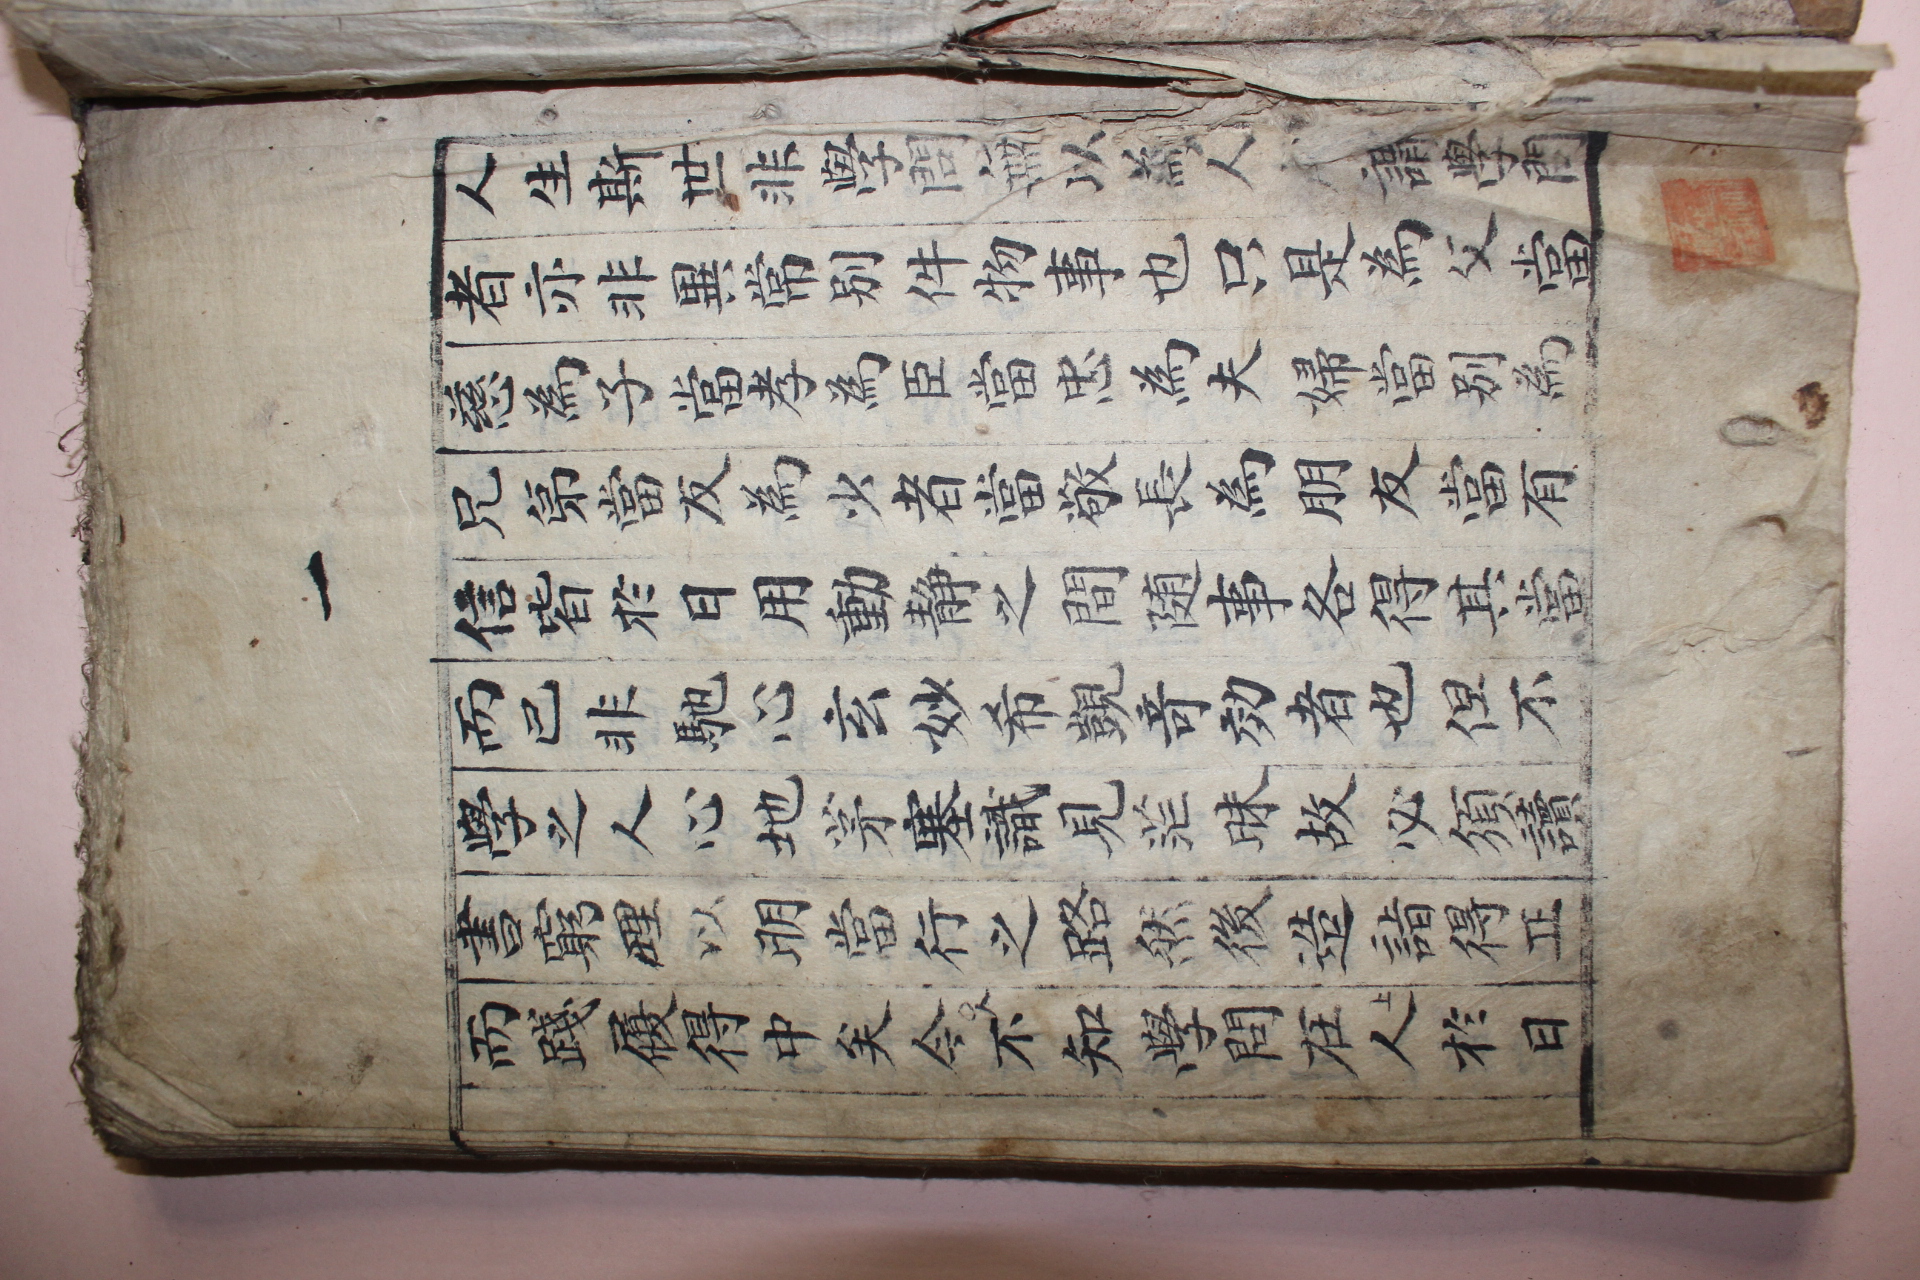 人生斯世非學問無以為人謂學問
者亦非異常別件物事也只是為父當
慈為子當孝為臣當忠為夫婦當別為
兄弟當友為少者當敬長為朋友當有
信皆於日用動靜之間随事各得其當
而已非馳心玄妙希覬奇效者也但不
學之人心地茅塞識見茫昧故必須讀
書窮理以明當行之路然後造詣得正
而踐履得中矣今人不知學問在人上於日
一